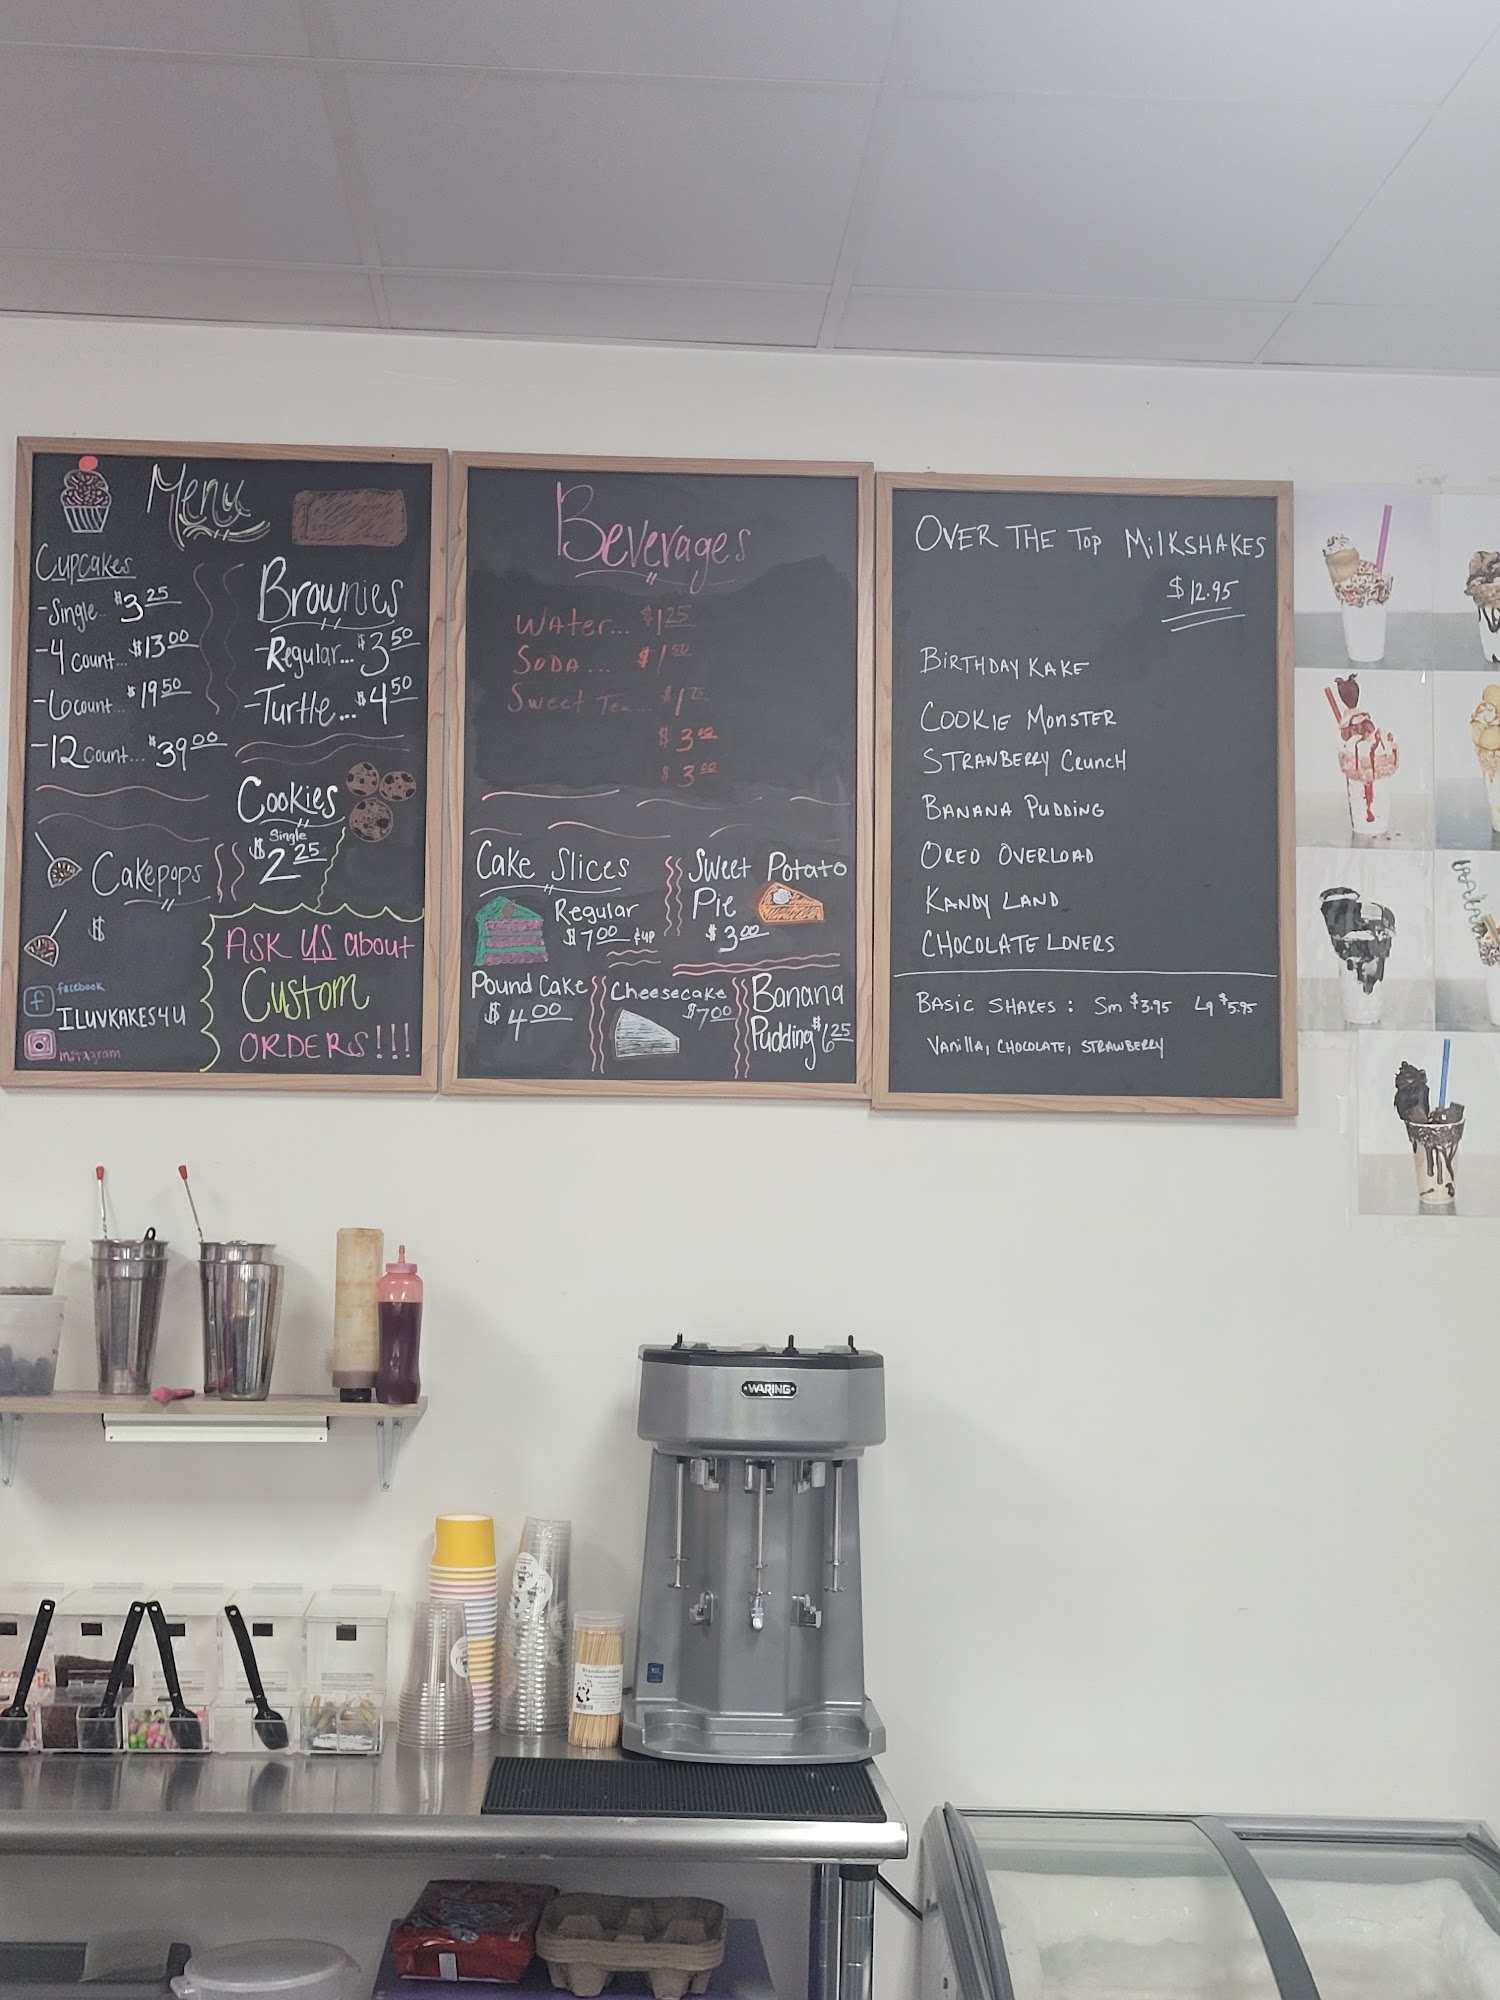 Menu
Cupcakes
-Single.. $3.25
-4 count... $13.00
-6 count... $19.50
-12 count... $39.00
Brownies
-Regular... $3.50
-Turtle... $4.50
Cookies
Single
$2.25
Cakepops
$
facebook
ILUVKAKES4U
Instagram
ASK US about
Custom
ORDERS!!!
Beverages
Water... $1.25
SODA... $1.50
Sweet Tea... $1.75
$3.00
$3.00
Cake Slices
Regular
$7.00 & up
Sweet Potato
Pie
$3.00
Pound Cake
$4.00
Cheesecake
$7.00
Banana
Pudding $6.25
OVER THE TOP MILKSHAKES
$12.95
BIRTHDAY KAKE
COOKIE MONSTER
STRAWBERRY CRUNCH
BANANA PUDDING
OREO OVERLOAD
KANDY LAND
CHOCOLATE LOVERS
BASIC SHAKES: Sm $3.95 Lg $5.95
Vanilla, CHOCOLATE, STRAWBERRY
WARING